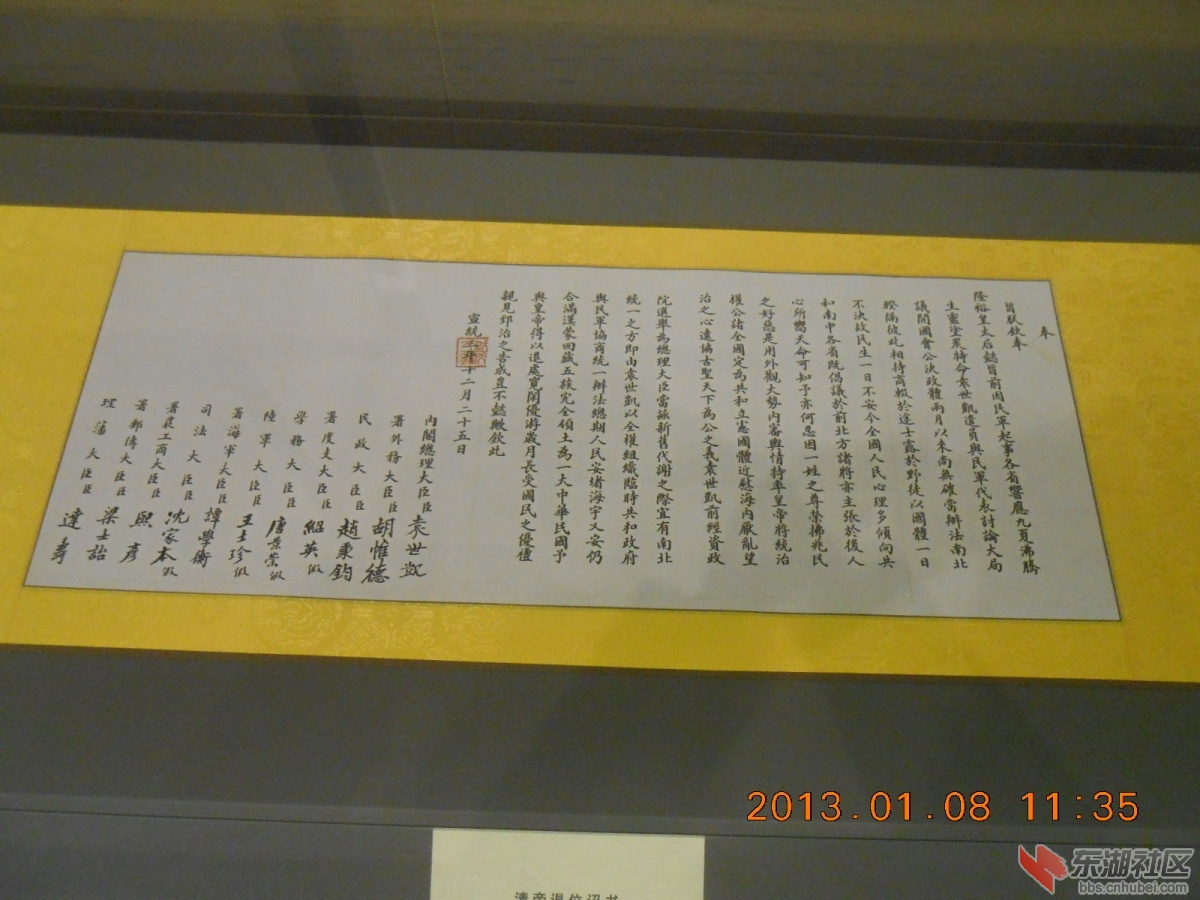 奉
旨朕欽奉
隆裕皇太后懿旨前因民軍起事各省響應九夏沸騰
生靈塗炭特命袁世凱遣員與民軍代表討論大局
議開國會公決政體兩月以來尚無確當辦法南北
睽隔彼此相持商輟於途士露於野徒以國體一日
不決故民生一日不安今全國人民心理多傾向共
和南中各省既倡議於前北方諸將亦主張於後人
心所嚮天命可知予亦何忍因一姓之尊榮拂兆民
之好惡是用外觀大勢內審輿情特率皇帝將統治
權公諸全國定為共和立憲國體近慰海內厭亂望
治之心遠協古聖天下為公之義袁世凱前經資政
院選舉為總理大臣當茲新舊代謝之際宜有南北
統一之方即由袁世凱以全權組織臨時共和政府
與民軍協商統一辦法總期人民安堵海宇乂安仍
合滿漢蒙回藏五族完全領土為一大中華民國予
與皇帝得以退處寬閒優游歲月長受國民之優禮
親見郅治之告成豈不懿歟欽此
宣統三年十二月二十五日
內閣總理大臣臣袁世凱
署外務大臣臣胡惟德
民政大臣臣趙秉鈞
署度支大臣臣紹英假
學務大臣臣唐景崇假
陸軍大臣臣王士珍假
署海軍大臣臣譚學衡
司法大臣臣沈家本假
署農工商大臣臣熙彥
署郵傳大臣臣梁士詒
理藩大臣臣達壽
2013.01.08 11:35
清帝退位诏书
东湖社区
bbs.cnhubei.com